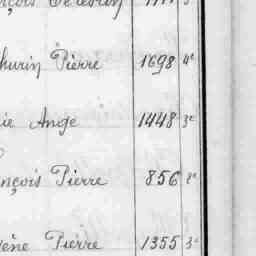 hurin Pierre 1698 4e
ie Ange 1448 3e
nçois Pierre 856 2e
ène Pierre 1355 3e